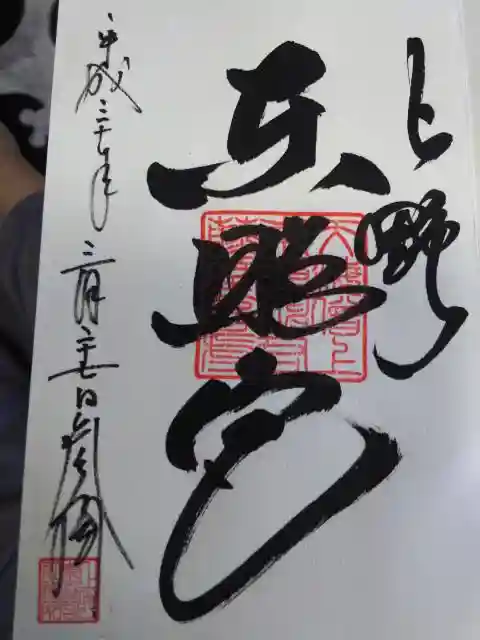 上野
東照宮
平成三十年三月二十七日参拝